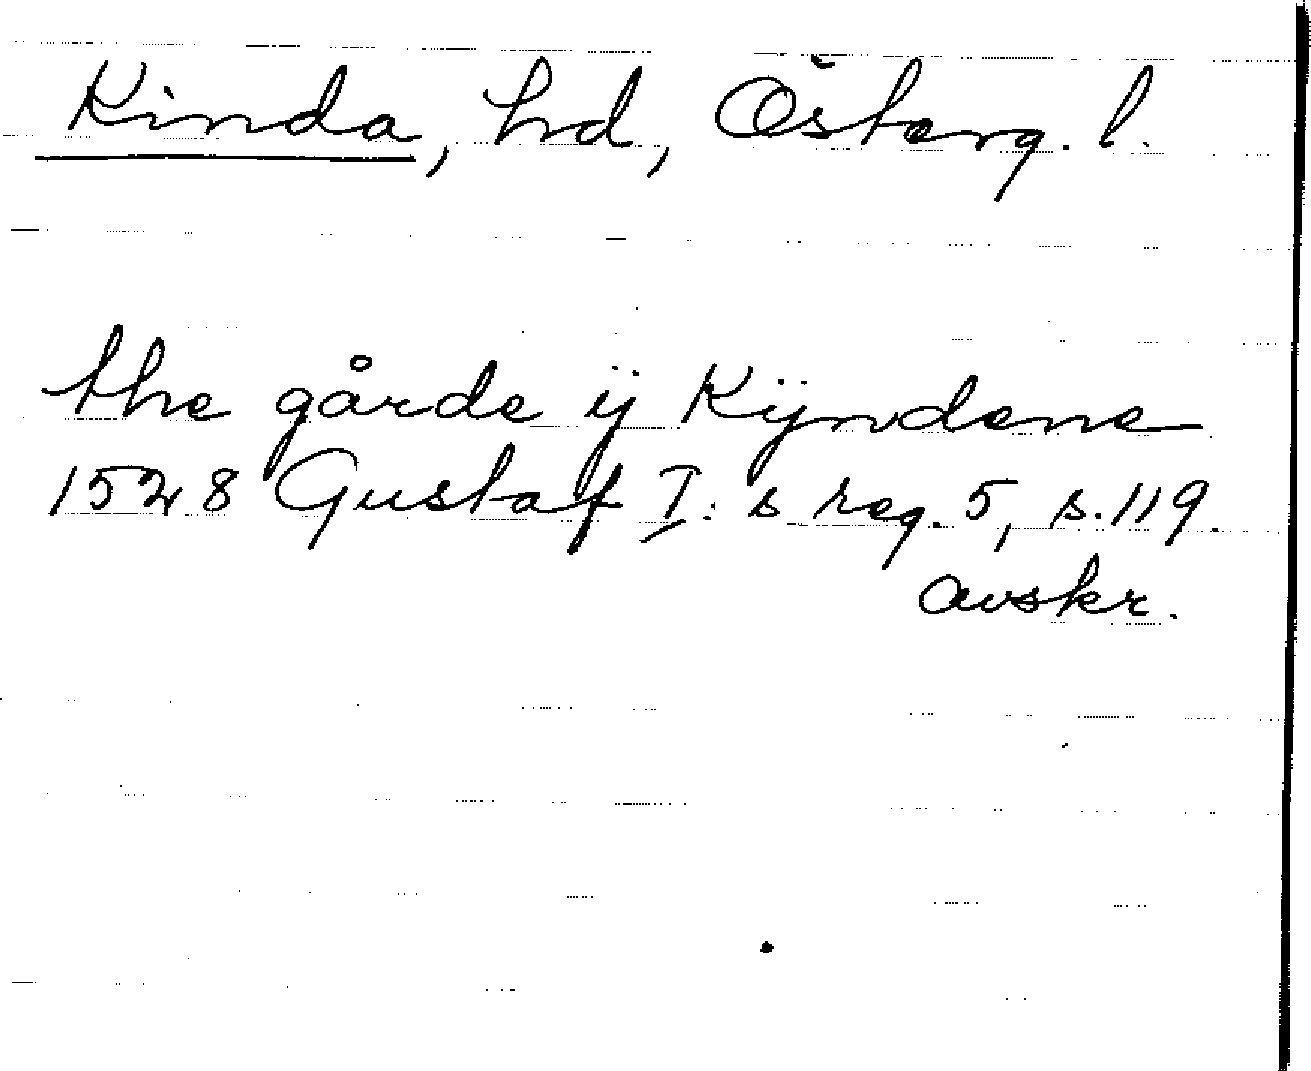 Kinda, hd, Österg. l.
the gårde ÿ Kÿndene
1528 Gustaf I:s reg. 5, s. 119.
avskr.